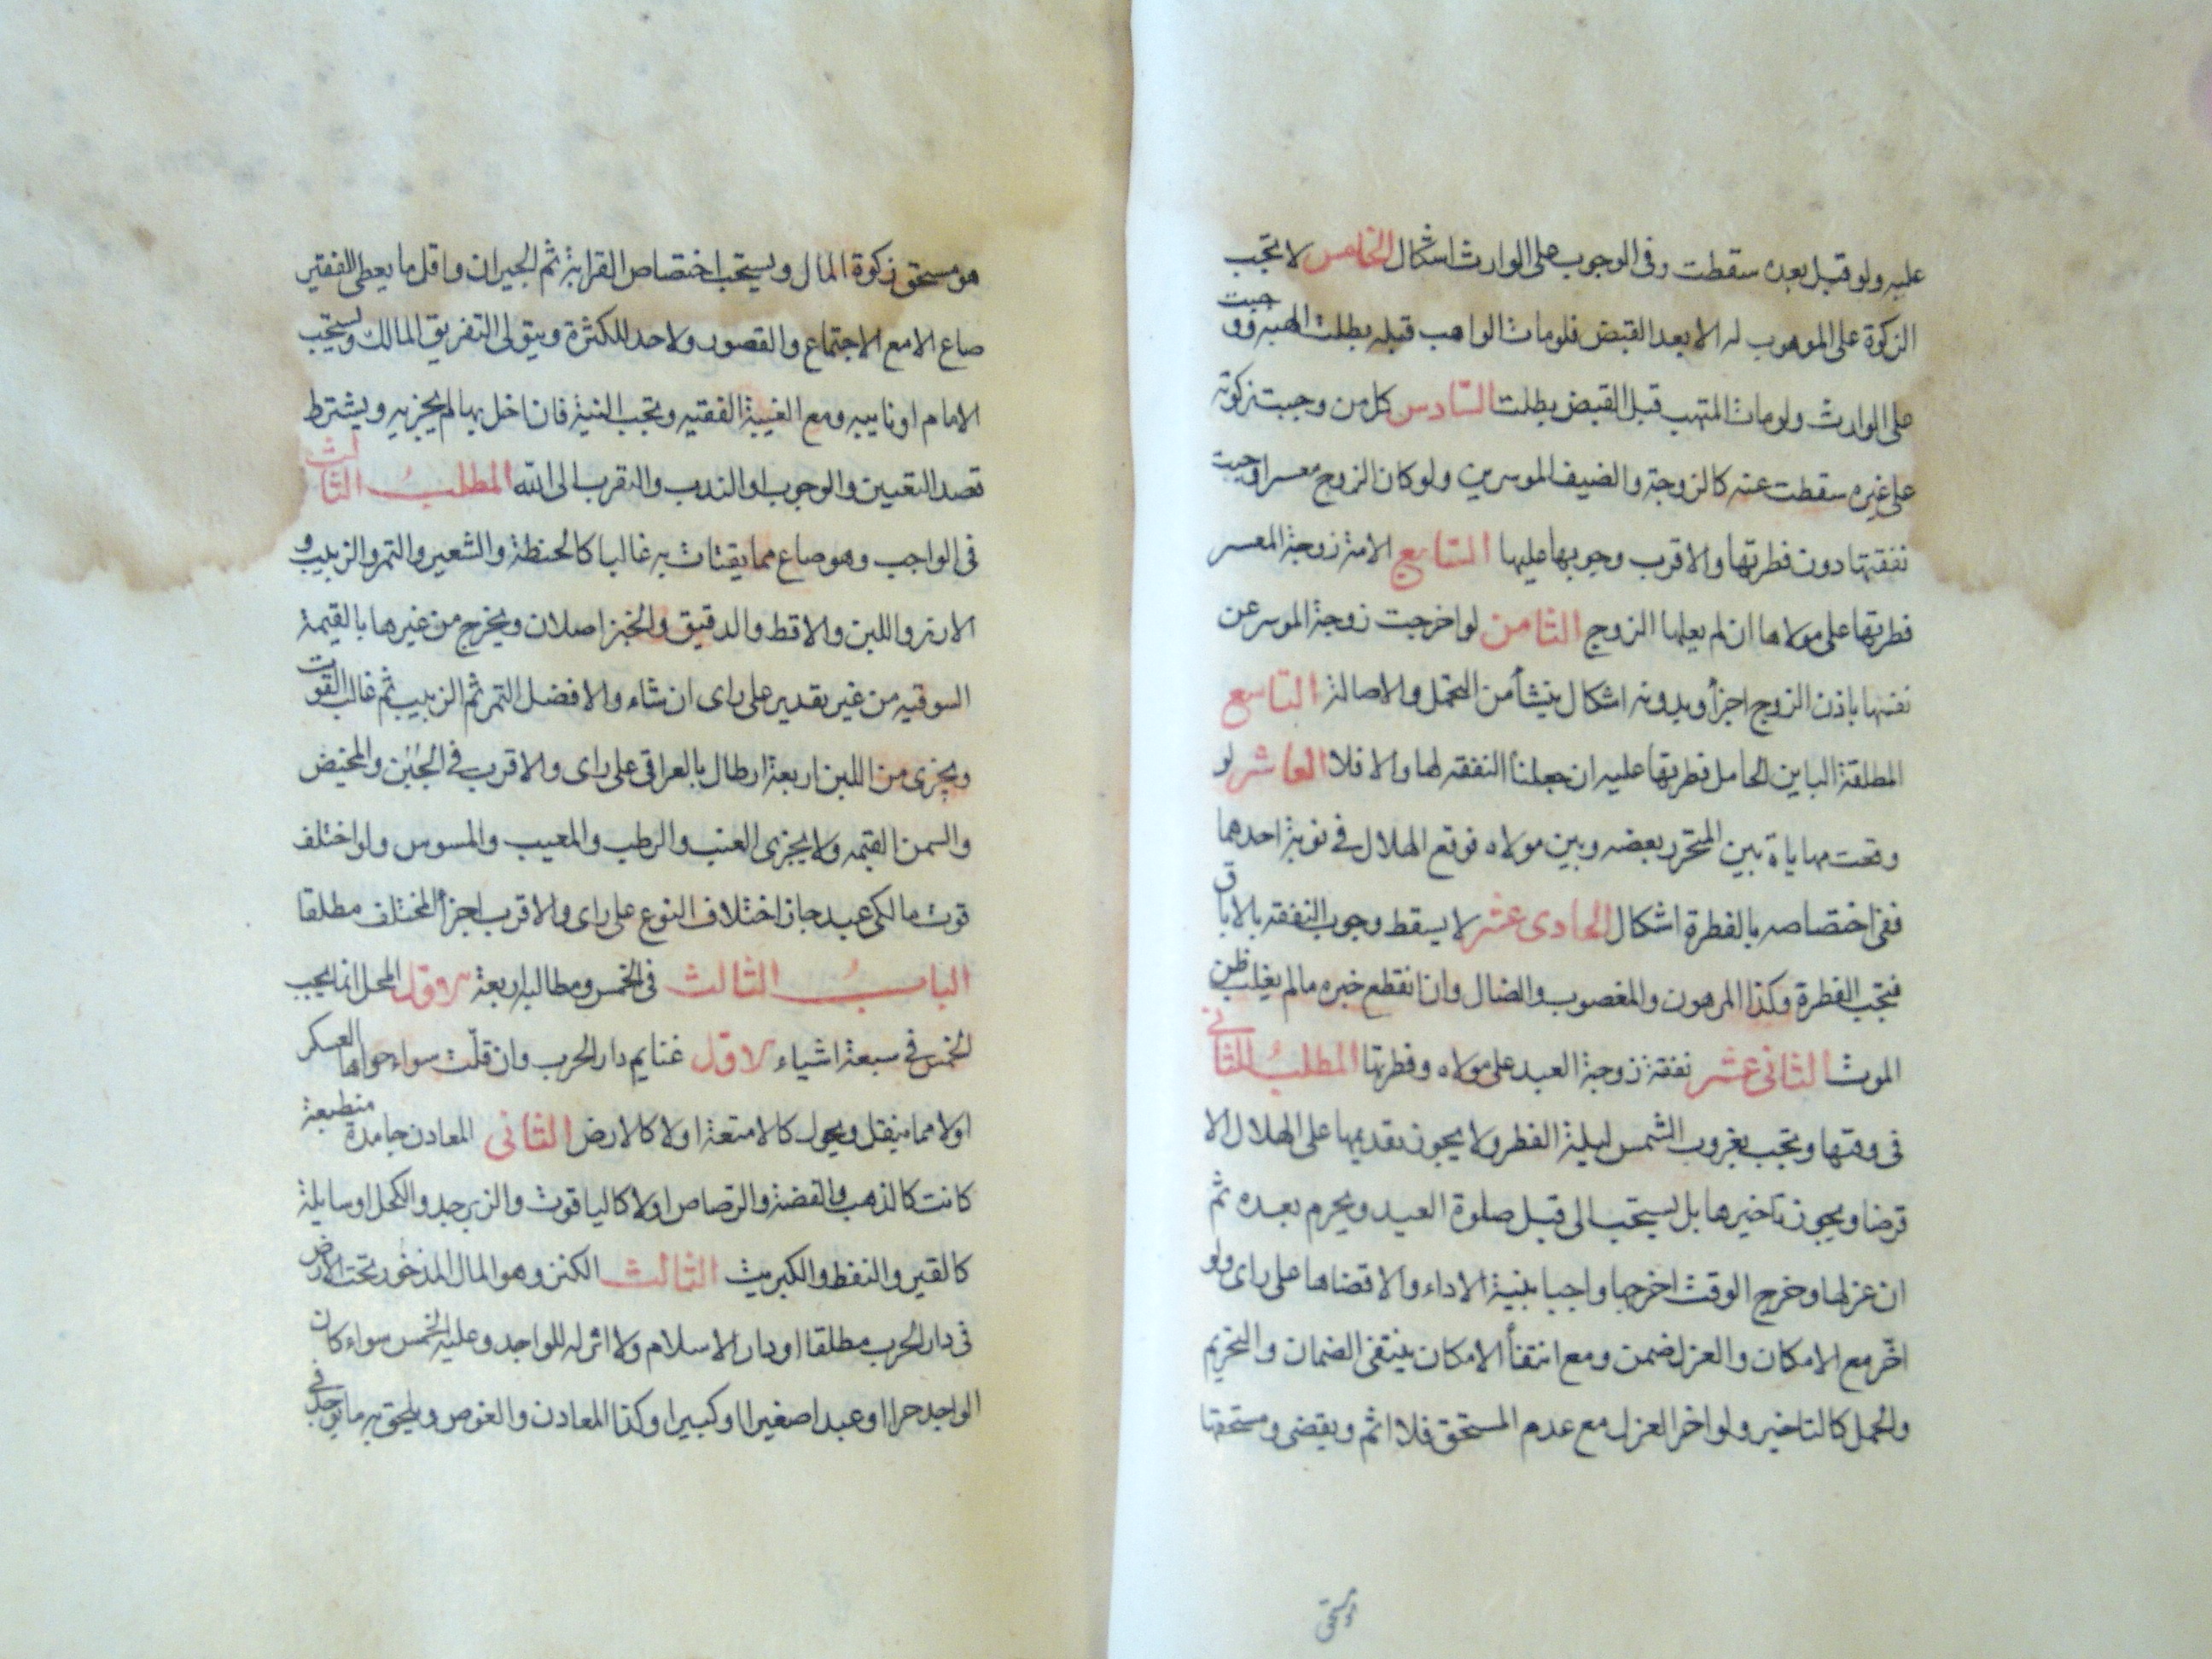 عليه ولو قبل بعده سقطت وفى الوجوب على الوارث اشكال الخامس لا تجب
الزكوة على الموهوب له الا بعد القبض فلو مات الواهب قبله بطلت الهبة ووجبت
على الوارث ولو مات المتهب قبل القبض بطلت السادس كل من وجبت زكوته
على غيره سقطت عنه كالزوجة والضيف الموسرين ولو كان الزوج معسرا وجبت
نفقتها دون فطرتها والاقرب وجوبها عليها السابع الامة زوجة المعسر
فطرتها على مولاها ان لم يعلها الزوج الثامن لو اخرجت زوجة الموسر عن
نفسها باذن الزوج اجزأ وبدونه اشكال ينشأ من التحمل والاصالة التاسع
المطلقة الباين الحامل فطرتها عليه ان جعلنا النفقة لها والا فلا العاشر لو
وقعت مهاياة بين المتحرر بعضه وبين مولاه فوقع الهلال فى نوبة احدهما
ففى اختصاصه بالفطرة اشكال الحادى عشر لا يسقط وجوب النفقة بالاباق
فتجب الفطرة وكذا المرهون والمغصوب والضال وان انقطع خبره ما لم يغلب ظن
الموت الثانى عشر نفقة زوجة العبد على مولاه وفطرتها المطلب الثانى
فى وقتها وتجب بغروب الشمس ليلة الفطر ولا يجوز تقديمها على الهلال الا
قرضا ويجوز تاخيرها بل يستحب الى قبل صلوة العيد ويحرم بعده ثم
ان عزلها وخرج الوقت اخرجها واجبا بنية الاداء والا قضاها على راى ولو
اخّر مع الامكان والعزل ضمن ومع انتفأ الامكان ينتفى الضمان والتحريم
والحمل كالتاخير ولو اخر العزل مع عدم المستحق فلا اثم ويقضى ومستحقها
هو مستحق زكوة المال ويستحب اختصاص القرابة ثم الجيران واقل ما يعطى الفقير
صاع الا مع الاجتماع والقصور ولا حد للكثرة ويتولى التفريق المالك ويستحب
الامام او نايبه ومع الغيبة الفقيه وتجب النية فان اخل بها لم يجزيه ويشترط
قصد التعيين والوجوب او الندب والتقرب الى الله المطلب الثالث
فى الواجب وهو صاع مما يقتات به غالبا كالحنطة والشعير والتمر والزبيب و
الارز واللبن والاقط والدقيق والخبز اصلان ويخرج من غيرها بالقيمة
السوقيه من غير تقدير على راى ان شاء والافضل التمر ثم الزبيب ثم غالب القوت
ويجزى من اللبن اربعة ارطال بالعراقى على راى والاقرب فى الجُبن والمخيض
والسمن القيمه ولا يجزى العنب والرطب والمعيب والمسوس ولو اختلف
قوت مالكى عبد جاز اختلاف النوع على راى والاقرب اجزأ المختلف مطلقا
الباب الثالث فى الخمس ومطالبه اربعة الاول المحل انما يجب
الخمس فى سبعة اشياء الاول غنايم دار الحرب وان قلّت سواء حواها العسكر
او لا مما ينقل ويحول كالامتعة او لا كالارض الثانى المعادن جامدة منطبعة
كانت كالذهب والفضة والرصاص او لا كالياقوت والزبرجد والكحل او سايلة
كالقير والنفط والكبريت الثالث الكنز وهو المال المذخور تحت الارض
فى دار الحرب مطلقا او دار الاسلام ولا اثر له للواجد وعليه الخمس سواء كان
الواجد حرا او عبدا صغيرا او كبيرا وكذا المعادن والغوص ويلحق به ما يوجد فى